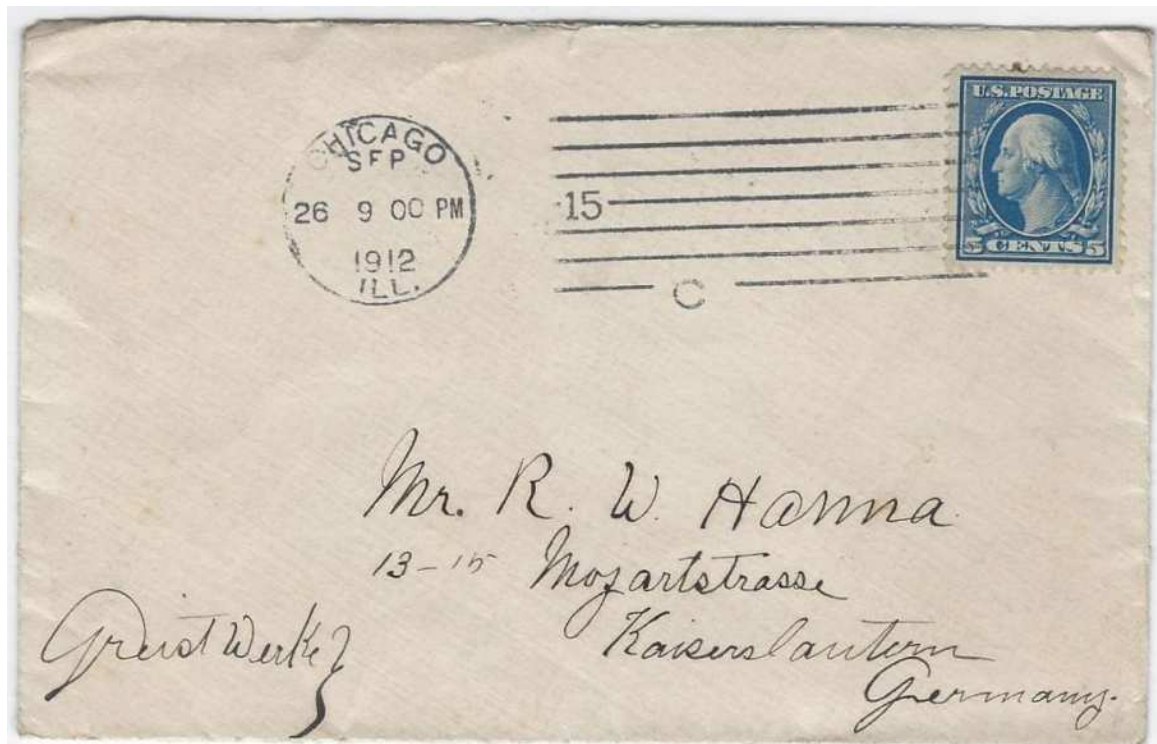 CHICAGO
SEP
26 9 00 PM
1912
ILL.
15
C
U.S. POSTAGE
5 CENTS 5
Mr. R. W. Hanna
13-15 Mozartstrasse
Kaiserslautern
Germany.
Greist Werke